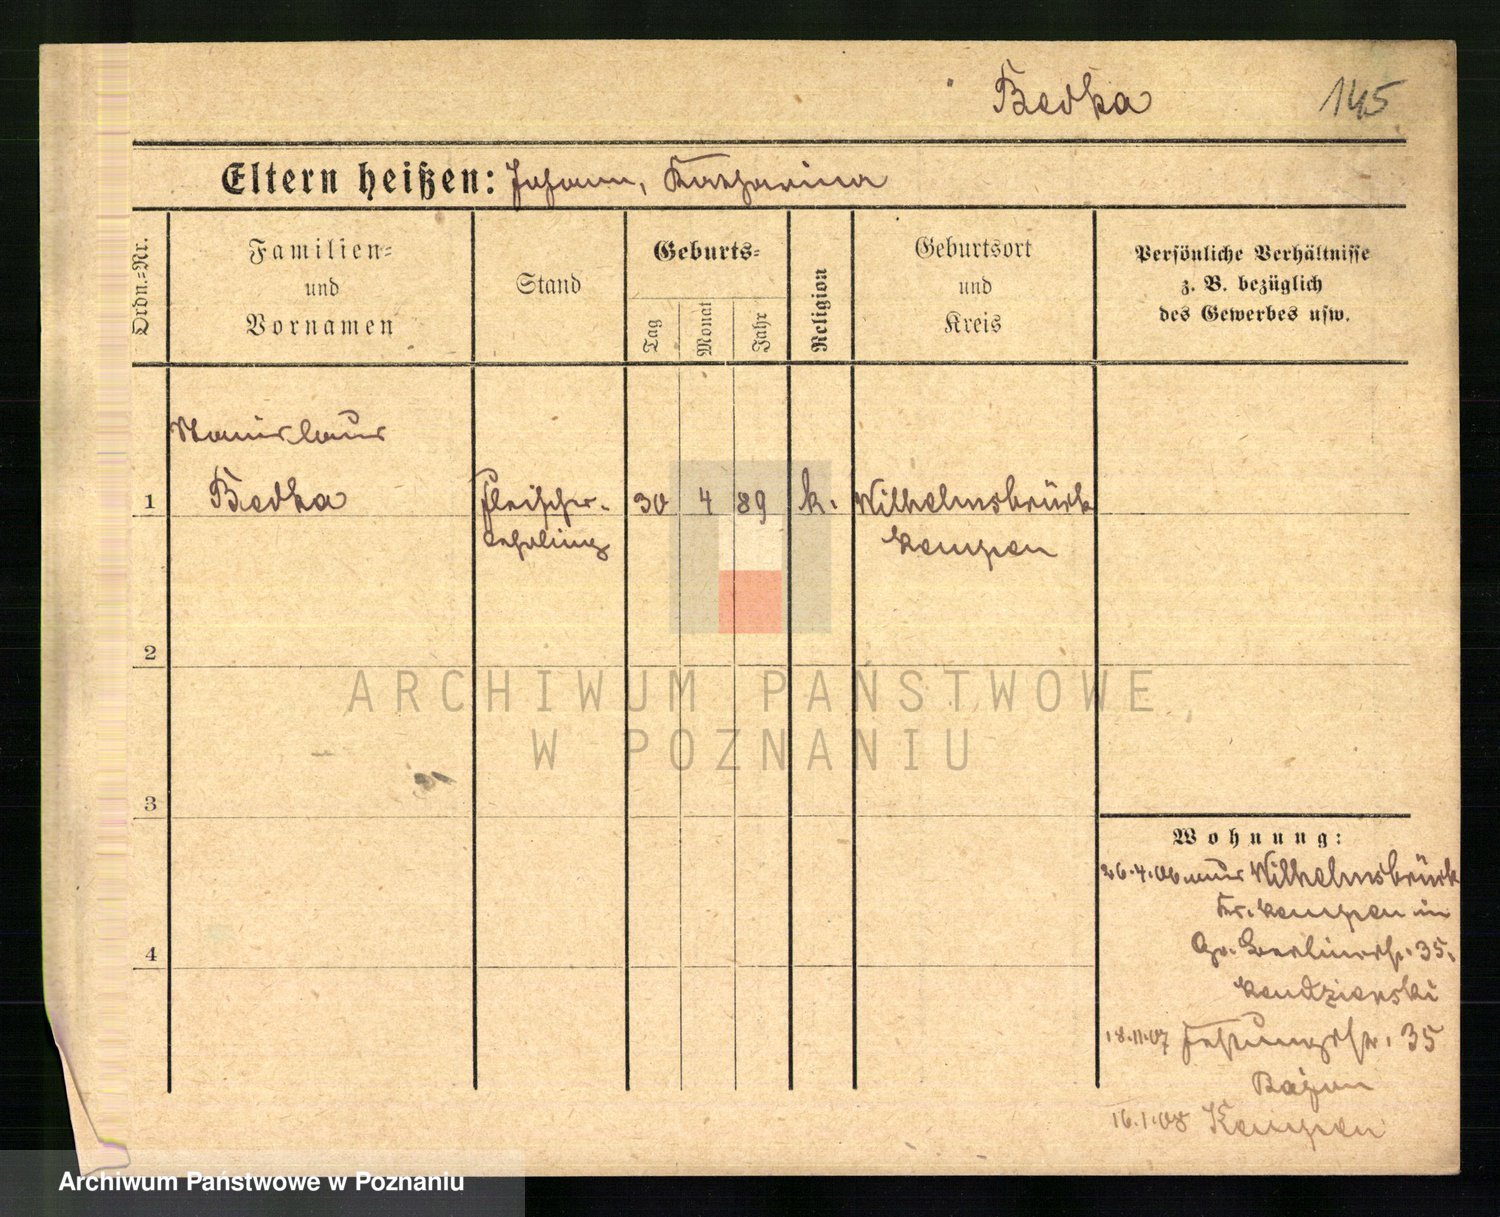 Bedka 145
Eltern heißen: Johann, Katharina
Ordn.=Nr.
Familien=
und
Vornamen
Stand
Geburts=
Tag
Monat
Jahr
Religion
Geburtsort
und
Kreis
Persönliche Verhältnisse
z. B. bezüglich
des Gewerbes usw.
Stanislaus
1 Bedka Fleischer- 30 4 89 k. Wilhelmsbrück
lehrling Kempen
2
3
4
Wohnung:
26.4.06 aus Wilhelmsbrück
Kr. Kempen in
Gr. Berlinerstr. 35.
Kendzierski
18.11.07 Festungsstr. 35
16.1.08 Kempen
ARCHIWUM PAŃSTWOWE
W POZNANIU
Archiwum Państwowe w Poznaniu